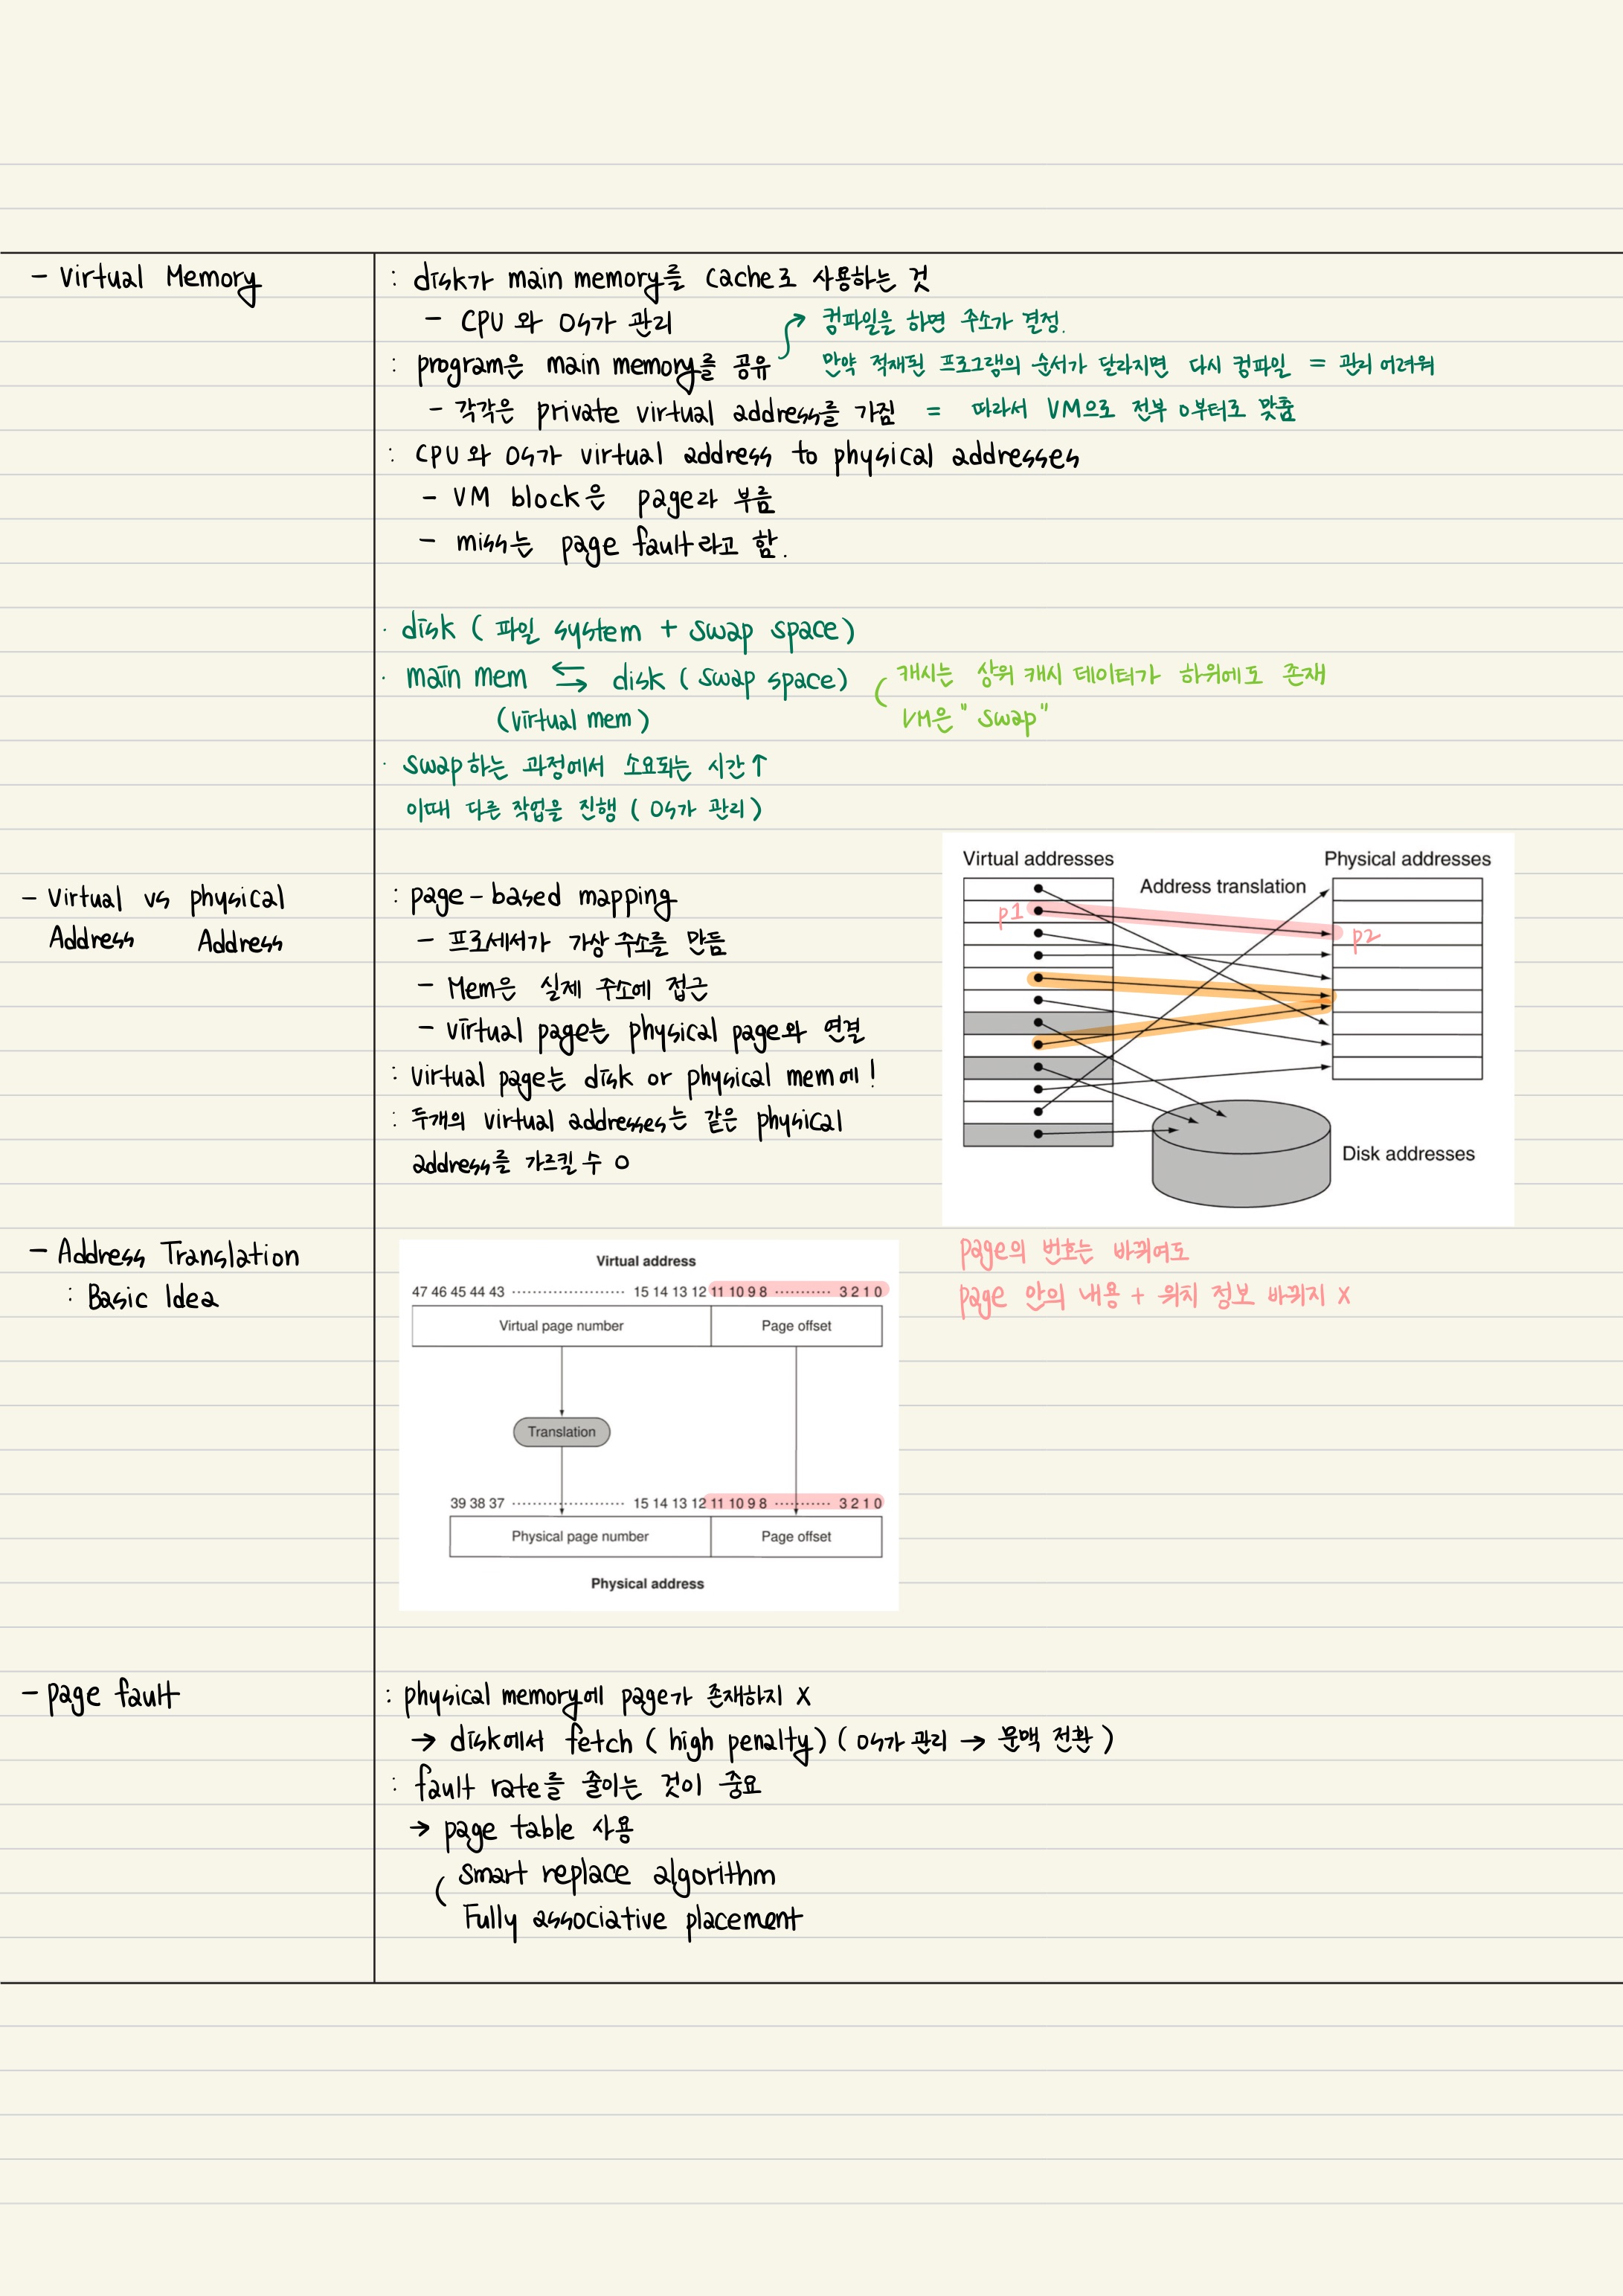 - Virtual Memory
: disk가 main memory를 cache로 사용하는 것
- CPU와 OS가 관리
컴파일을 하면 주소가 결정.
: program은 main memory를 공유
만약 적재된 프로그램의 순서가 달라지면 다시 컴파일 = 관리 어려워
- 각각은 private virtual address를 가짐 = 따라서 VM으로 전부 0부터로 맞춤
: CPU와 OS가 virtual address to physical addresses
- VM block은 page라 부름
- miss는 page fault라고 함.
· disk ( 파일 system + swap space )
· main mem ⇆ disk ( swap space )
(virtual mem)
캐시는 상위 캐시 데이터가 하위에도 존재
VM은 " swap"
· swap하는 과정에서 소요되는 시간↑
이때 다른 작업을 진행 ( OS가 관리 )
- Virtual vs physical
Address Address
: page-based mapping
- 프로세서가 가상 주소를 만듬
- Mem은 실제 주소에 접근
- virtual page는 physical page와 연결
: virtual page는 disk or physical mem에!
: 두개의 virtual addresses는 같은 physical
address를 가르킬 수 O
Virtual addresses
Physical addresses
Address translation
p1
p2
Disk addresses
- Address Translation
: Basic Idea
Virtual address
47 46 45 44 43 ······················ 15 14 13 12 11 10 9 8 ··········· 3 2 1 0
Virtual page number
Page offset
Translation
39 38 37 ······················ 15 14 13 12 11 10 9 8 ··········· 3 2 1 0
Physical page number
Page offset
Physical address
page의 번호는 바뀌여도
page 안의 내용 + 위치 정보 바뀌지 X
- page fault
: physical memory에 page가 존재하지 X
→ disk에서 fetch ( high penalty ) ( OS가 관리 → 문맥 전환 )
: fault rate를 줄이는 것이 중요
→ page table 사용
( smart replace algorithm
Fully associative placement